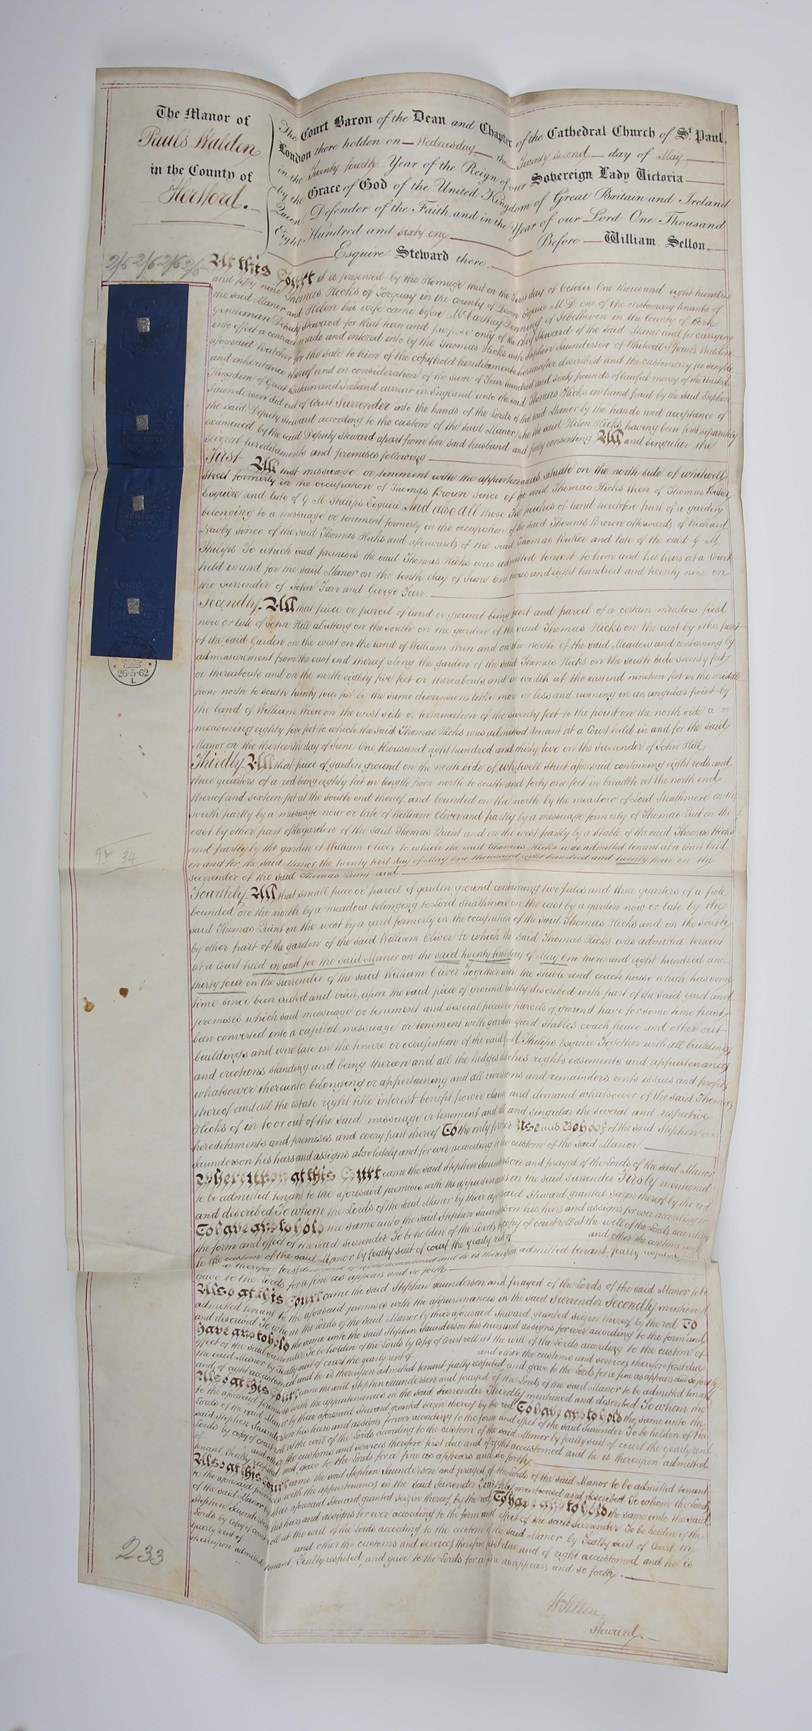 The Manor of
Pauls Walden
in the County of
Hertford.
The Court Baron of the Dean and Chapter of the Cathedral Church of St Paul,
London there holden on Wednesday the Twenty second day of May
in the Twenty fourth Year of the Reign of our Sovereign Lady Victoria
by the Grace of God of the United Kingdom of Great Britain and Ireland
Queen Defender of the Faith and in the Year of our Lord One Thousand
Eight Hundred and sixty one Before William Sellon
Esquire Steward there
2/6 2/6 2/6 2/6
At this Court it is presented by the Homage that on the day of October One thousand eight hundred
and fifty nine Thomas Hicks of Torquay in the county of Devon Esquire M.D. one of the customary tenants of
the said Manor and Helen his wife came before
Gentleman Deputy Steward for that turn and purpose only of the chief Steward of the said Manor and for carrying
into effect a contract made and entered into by the Thomas Hicks with Stephen Saunderson of Whitwell
aforesaid Butcher for the sale to him of the copyhold hereditaments hereinafter described and the customary fee simple
and inheritance thereof and in consideration of the sum of Four hundred and sixty pounds of lawful money of the United
Kingdom of Great Britain and Ireland current in England unto the said Thomas Hicks in hand paid by the said Stephen
Saunderson did out of Court Surrender into the hands of the Lords of the said Manor by the hands and acceptance of
the said Deputy Steward according to the custom of the said Manor she the said Helen Hicks having been first separately
examined by the said Deputy Steward apart from her said husband and freely consenting All and singular the
several hereditaments and premises following
First All that messuage or tenement with the appurtenances situate on the north side of whitwell
Street formerly in the occupation of Thomas Brown since of the said Thomas Hicks then of Thomas
Esquire and late of G M Philips Esquire And also all those Two pieces of land heretofore part of a garden
belonging to a messuage or tenement formerly in the occupation of the said Thomas Brown afterwards of Richard
since of the said Thomas Hicks and afterwards of the said Thomas and late of the said G M
Philips To which said premises the said Thomas Hicks was admitted tenant to him and his heirs at a Court
held in and for the said Manor on the tenth day of June One thousand eight hundred and twenty nine on
the Surrender of John and George
Secondly All that piece or parcel of land or ground being part and parcel of a certain meadow
now or late of John Hill abutting on the south on the garden of the said Thomas Hicks on the east by
of the said Garden on the west on the land of William and on the north of the said Meadow and containing by
admeasurement from the east end thereof along the garden of the said Thomas Hicks on the south side seventy feet
or thereabouts and on the north eighty five feet or thereabouts and in width at the east end nineteen feet in the middle
from north to south thirty five feet be the same dimensions little more or less and running in an angular point by
the land of William on the west side or termination of the seventy feet to the point on the north side
measuring eighty five feet to which the said Thomas Hicks was admitted tenant at a Court held in and for the said
Manor on the thirteenth day of June One thousand eight hundred and thirty two on the Surrender of John Hill
Thirdly All that piece of garden ground on the north side of whitwell Street aforesaid containing eight rods and
three quarters of a rod being eighty feet in length from north to south and forty one feet in breadth at the north end
thereof and sixteen feet at the south end thereof and bounded on the north by the meadow of Lord Strathmore on the
south partly by a messuage now or late of William Oliver and partly by a messuage formerly of Thomas on the
east by other part of the garden of the said Thomas and on the west partly by a stable of the said Thomas Hicks
and partly by the garden of William Oliver to which the said Thomas Hicks was admitted tenant at a Court held
in and for the said Manor the twenty first day of May One thousand eight hundred and twenty four on the
surrender of the said Thomas and
Fourthly All that small piece or parcel of garden ground containing two poles and three quarters of a pole
bounded on the north by a meadow belonging to Lord Strathmore on the east by a garden now or late by the
said Thomas on the west by a yard formerly in the occupation of the said Thomas Hicks and on the south
by other part of the garden of the said William Oliver to which the said Thomas Hicks was admitted tenant
at a Court held in and for the said Manor on the said twenty first day of May One thousand eight hundred and
thirty four on the surrender of the said William Oliver Together with the stable and coach house which has been
time since been erected and built upon the said piece of ground lastly described with part of the said yard and
premises which said messuage or tenement and several pieces or parcels of ground have for some time past
been converted into a capital messuage or tenement with garden yard stables coach house and other out
buildings and were late in the tenure or occupation of the said G M Philips Esquire Together with all buildings
and erections standing and being thereon and all the hedges ditches rights easements and appurtenances
whatsoever thereunto belonging or appertaining and all reversions and remainders rents issues and profits
thereof and all the estate right title interest benefit power claim and demand whatsoever of the said Thomas
Hicks of in to or out of the said messuage or tenement and all and singular the several and respective
hereditaments and premises and every part thereof To the only proper Use and Behoof of the said Stephen
Saunderson his heirs and assigns absolutely and for ever according to the custom of the said Manor
Whereupon at this Court came the said Stephen Saunderson and prayed of the Lords of the said Manor
to be admitted tenant to the aforesaid premises with the appurtenances in the said Surrender Firstly mentioned
and described To whom the Lords of the said Manor by their aforesaid Steward granted seizin thereof by the rod
To have and to hold the same unto the said Stephen Saunderson his heirs and assigns for ever according to
the form and effect of the said Surrender To be holden of the Lords by copy of court roll at the will of the Lords according
to the custom of the said Manor by fealty suit of court the yearly rent of and other the customs and
gave to the Lords for a fine as appears and so forth
Also at this Court came the said Stephen Saunderson and prayed of the Lords of the said Manor to be
admitted tenant to the aforesaid premises with the appurtenances in the said Surrender Secondly mentioned
and described To whom the Lords of the said Manor by their aforesaid Steward granted seizin thereof by the rod To
have and to hold the same unto the said Stephen Saunderson his heirs and assigns for ever according to the form and
effect of the said Surrender To be holden of the Lords by Copy of Court roll at the will of the Lords according to the custom of
the said Manor by fealty suit of court the yearly rent of and other the customs and services therefore first due
and of right accustomed and he is thereupon admitted tenant fealty respited and gave to the Lords for a fine as appears and so forth
Also at this Court came the said Stephen Saunderson and prayed of the Lords of the said Manor to be admitted tenant
to the aforesaid premises with the appurtenances in the said Surrender Thirdly mentioned and described To whom the
Lords of the said Manor by their aforesaid Steward granted seizin thereof by the rod To have and to hold the same unto the
said Stephen Saunderson his heirs and assigns for ever according to the form and effect of the said Surrender To be holden of the
Lords by copy of court roll at the will of the Lords according to the custom of the said Manor by fealty suit of court the yearly rent
of and other the customs and services therefore first due and of right accustomed and he is thereupon admitted
tenant fealty respited and gave to the Lords for a fine as appears and so forth
Also at this Court came the said Stephen Saunderson and prayed of the Lords of the said Manor to be admitted tenant
to the aforesaid premises with the appurtenances in the said Surrender Fourthly mentioned and described To whom the Lords
of the said Manor by their aforesaid Steward granted seizin thereof by the rod To have and to hold the same unto the said
Stephen Saunderson his heirs and assigns for ever according to the form and effect of the said Surrender To be holden of the
Lords by Copy of Court roll at the will of the Lords according to the custom of the said Manor by Fealty Suit of Court the
yearly rent of and other the customs and services therefore first due and of right accustomed and he is
thereupon admitted tenant Fealty respited and gave to the Lords for a fine as appears and so forth
26·5·62
34
233
Wm Sellon
Steward